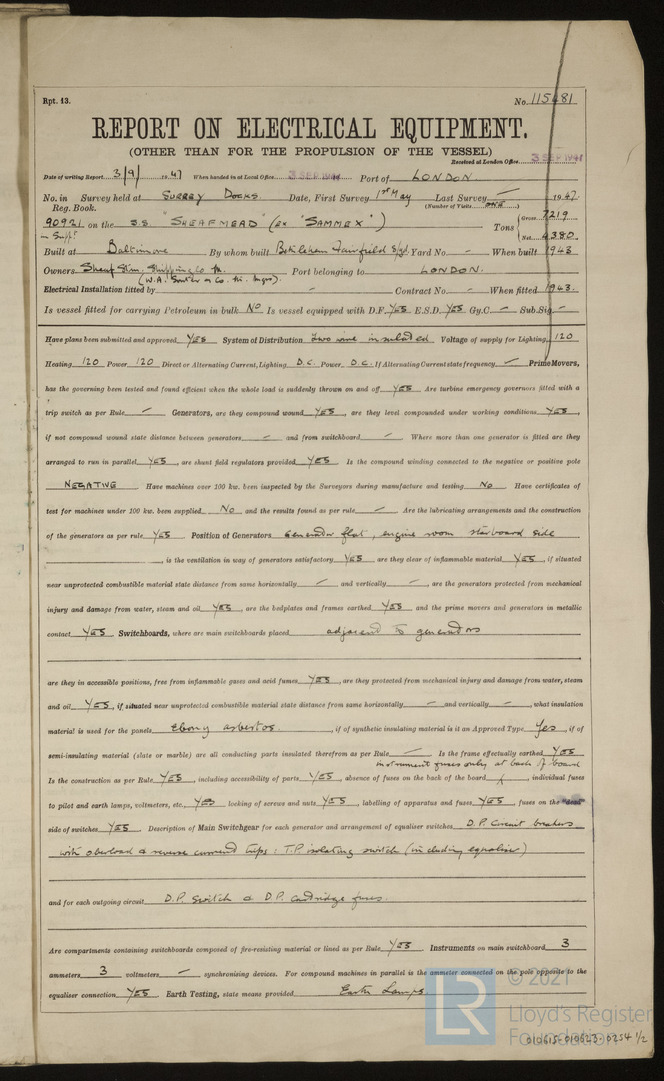 Rpt. 13.
No. 115481
REPORT ON ELECTRICAL EQUIPMENT.
(OTHER THAN FOR THE PROPULSION OF THE VESSEL)
Received at London Office 3 SEP 1947
Date of writing Report 3/9/ 1947 When handed in at Local Office 3 SEP 1947 Port of LONDON
No. in Survey held at SURREY DOCKS. Date, First Survey 1st May Last Survey — 1947.
Reg. Book. (Number of Visits ONE )
90921 on the S.S. "SHEAFMEAD" (ex "SAMMEX") Tons { Gross 7219
in Suppt. Net 4380
Built at Baltimore By whom built Bethlehem Fairfield S/yd. Yard No. - When built 1943
Owners Sheaf Stm. Shipping Co. Ltd. Port belonging to LONDON.
(W.A. Souter & Co. Ltd. Mgrs).
Electrical Installation fitted by - Contract No. - When fitted 1943.
Is vessel fitted for carrying Petroleum in bulk NO Is vessel equipped with D.F. YES E.S.D. YES Gy.C. - Sub.Sig. -
Have plans been submitted and approved YES System of Distribution Two wire insulated Voltage of supply for Lighting 120
Heating 120 Power 120 Direct or Alternating Current, Lighting D.C. Power D.C. If Alternating Current state frequency — Prime Movers,
has the governing been tested and found efficient when the whole load is suddenly thrown on and off YES Are turbine emergency governors fitted with a
trip switch as per Rule — Generators, are they compound wound YES, are they level compounded under working conditions YES,
if not compound wound state distance between generators — and from switchboard — Where more than one generator is fitted are they
arranged to run in parallel YES, are shunt field regulators provided YES Is the compound winding connected to the negative or positive pole
NEGATIVE Have machines over 100 kw. been inspected by the Surveyors during manufacture and testing NO. Have certificates of
test for machines under 100 kw. been supplied NO and the results found as per rule — Are the lubricating arrangements and the construction
of the generators as per rule YES Position of Generators Generator flat, engine room starboard side
, is the ventilation in way of generators satisfactory YES are they clear of inflammable material YES, if situated
near unprotected combustible material state distance from same horizontally — and vertically —, are the generators protected from mechanical
injury and damage from water, steam and oil YES, are the bedplates and frames earthed YES and the prime movers and generators in metallic
contact YES Switchboards, where are main switchboards placed adjacent to generators
are they in accessible positions, free from inflammable gases and acid fumes YES, are they protected from mechanical injury and damage from water, steam
and oil YES, if situated near unprotected combustible material state distance from same horizontally — and vertically —, what insulation
material is used for the panels Ebony asbestos., if of synthetic insulating material is it an Approved Type Yes, if of
semi-insulating material (slate or marble) are all conducting parts insulated therefrom as per Rule — Is the frame effectually earthed YES
instrument fuses only at back of board
Is the construction as per Rule YES, including accessibility of parts YES, absence of fuses on the back of the board, individual fuses
to pilot and earth lamps, voltmeters, etc., YES locking of screws and nuts YES, labelling of apparatus and fuses YES, fuses on the "dead"
side of switches YES. Description of Main Switchgear for each generator and arrangement of equaliser switches D.P. Circuit breakers
with overload & reverse current trips: T.P. isolating switch (including equaliser)
and for each outgoing circuit D.P. switch & D.P. cartridge fuses.
Are compartments containing switchboards composed of fire-resisting material or lined as per Rule YES Instruments on main switchboard 3
ammeters 3 voltmeters — synchronising devices. For compound machines in parallel is the ammeter connected on the pole opposite to the
equaliser connection YES. Earth Testing, state means provided Earth Lamps.
© 2021
LR
Lloyd's Register
Foundation
010615-010623-0254 1/2